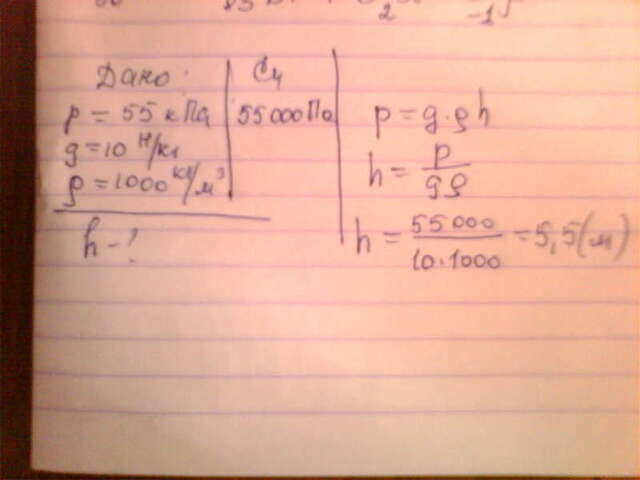 Дано:
p = 55 кПа
g = 10 Н/кг
ρ = 1000 кг/м³
h - ?
Си
55 000 Па
p = g · ρ h
h = p / gρ
h = 55 000 / 10 · 1000 = 5,5 (м)